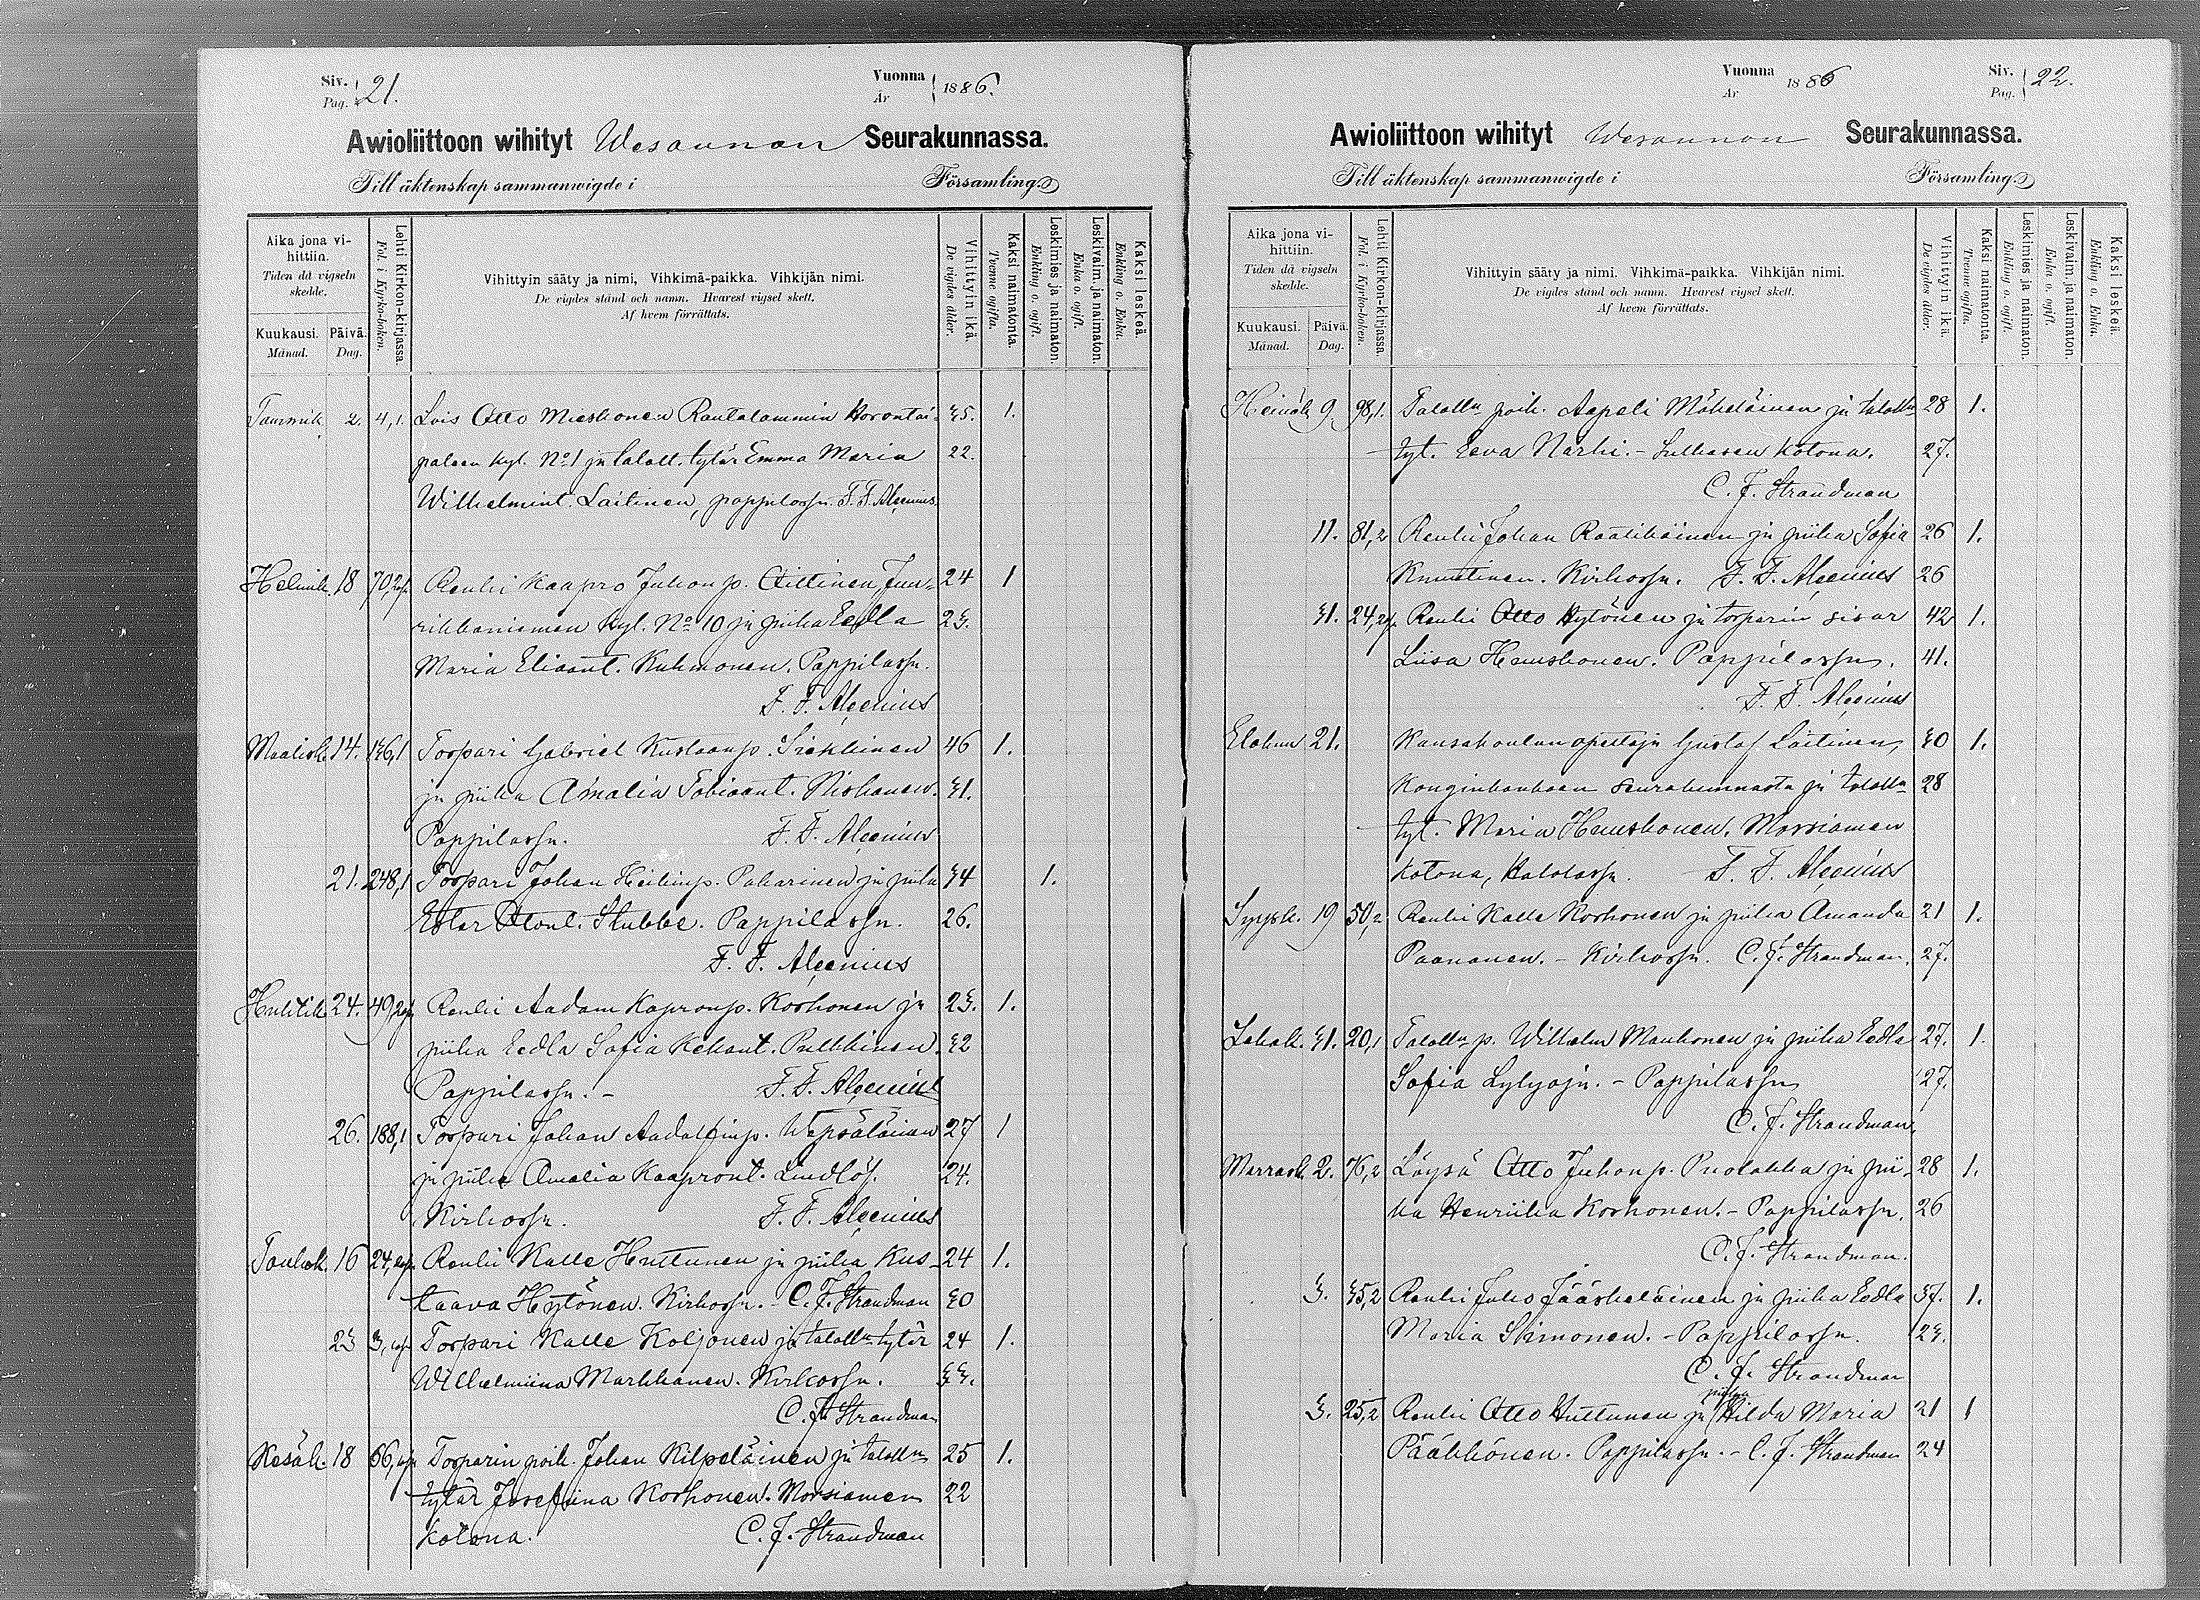 Siv. Pag. 21.
Vuonna År 1886.
Awioliittoon wihityt Wesannan Seurakunnassa.
Till äktenskap sammanwigde i Församling.
Aika jona vihittiin. Tiden då vigseln skedde.
Kuukausi. Månad. Päivä. Dag.
Lehti Kirkon-kirjassa. Fol. i Kyrko-boken.
Vihittyin sääty ja nimi, Vihkimä-paikka. Vihkijän nimi.
De vigdes stånd och namn. Hvarest vigsel skett.
Af hvem förrättats.
Vihittyin ikä. De vigdes ålder.
Kaksi naimatonta. Tvenne ogifta.
Leskimies ja naimaton. Enkling o. ogift.
Leskivaim. ja naimaton. Enka o. ogift.
Kaksi leskeä. Enkling o. Enka.
Tammik. 2. 4,1. Lois Otto Mieskonen Rautalammin Horontai- 35. 1.
paleen kyl. No 1 ja taloll. tytär Emma Maria 22.
Wilhelmint. Laitinen, pappilassa. F. F. Alcenius
Helmik. 18 70,2 Renki Kaapro Juhonp. Aittinen, Juu- 24 1
rikkaniemen kyl. No 10 ja piika Eedla 23.
Maria Eliaant. Kuhmonen. Pappilassa.
F. F. Alcenius
Maalisk. 14. 136,1 Torpari Gabriel Kustaanp. 46 1.
ja piika Amalia Tobiaant. Niskanen. 31.
Pappilassa. F. F. Alcenius
21. 248,1 Torpari Johan Heikinp. Pakarinen ja piika 34 1.
Ester Stubbe. Pappilassa. 26.
F. F. Alcenius
Huhtik. 24. 49, Renki Aadam Kapronp. Korhonen ja 23. 1.
piika Eedla Sofia Pulkkinen. 32
Pappilassa. - F. F. Alcenius
26. 188,1 Torpari Johan Aadolfinp. Wepsäläinen 27 1
ja piika Amalia Kaapront. Lindlöf. 24.
Kirkossa. F. F. Alcenius
Toukok. 16 24, Renki Kalle Huttunen ja piika Kus- 24 1.
taava Hytönen. Kirkossa. - C. F. Strandman 30
23 3, Torpari Kalle Koljonen ja talolln tytär 24 1.
Wilhelmiina Markkanen. Kirkossa. 33.
C. F. Strandman
Kesäk. 18 66, Torparin poik. Johan Kilpeläinen ja talolln 25 1.
tytär Josefiina Korhonen. Morsiamen 22
kotona. C. F. Strandman
Vuonna År 1886
Siv. Pag. 22.
Awioliittoon wihityt Wesannon Seurakunnassa.
Till äktenskap sammanwigde i Församling.
Aika jona vihittiin. Tiden då vigseln skedde.
Kuukausi. Månad. Päivä. Dag.
Lehti Kirkon-kirjassa. Fol. i Kyrko-boken.
Vihittyin sääty ja nimi. Vihkimä-paikka. Vihkijän nimi.
De vigdes stånd och namn. Hvarest vigsel skett.
Af hvem förrättats.
Vihittyin ikä. De vigdes ålder.
Kaksi naimatonta. Tvenne ogifta.
Leskimies ja naimaton. Enkling o. ogift.
Leskivaim. ja naimaton. Enka o. ogift.
Kaksi leskeä. Enkling o. Enka.
Heinäk. 9. 98,1. Talolln poik. Aapeli Mäkeläinen ja talolln 28 1.
tyt. Eeva Närhi. - Sulhasen kotona. 27.
C. F. Strandman
11. 81,2 Renki Johan Raatikainen ja piika Sofia 26 1.
Knuutinen. Kirkossa. F. F. Alcenius 26
31. 24,2 Renki Otto Hytönen ja torparin sisar 42 1.
Liisa Heiskonen. Pappilassa. 41.
F. F. Alcenius
Elokuu 21. Kansakoulun opettaja Gustaf Laitinen 30 1.
Konginkankaan seurakunnasta ja talolln 28
tyt. Maria Heiskonen. Morsiamen
kotona, F. F. Alcenius
Syysk. 19 50,2 Renki Kalle Korhonen ja piika Amanda 21 1.
Paananen. - Kirkossa. C. F. Strandman. 27.
Lokak. 31. 20,1 Talolln p. Wilhelm Maukonen ja piika Eedla 27. 1.
Sofia Lyhyoja. - Pappilassa 27.
C. F. Strandman.
Marrask. 2. 76,2 Löysä Otto Juhonp. Puolakka ja pii- 28 1.
ka Henriika Korhonen. - Pappilassa. 26
C. F. Strandman.
3. 35,2 Renki Juho Jääskeläinen ja piika Eedla 37. 1.
Maria Simonen. - Pappilassa. 23.
C. F. Strandman
3. 25,2 Renki Otto Huttunen ja piika Hilda Maria 21 1
Pääkkönen. Pappilassa. - C. F. Strandman 24